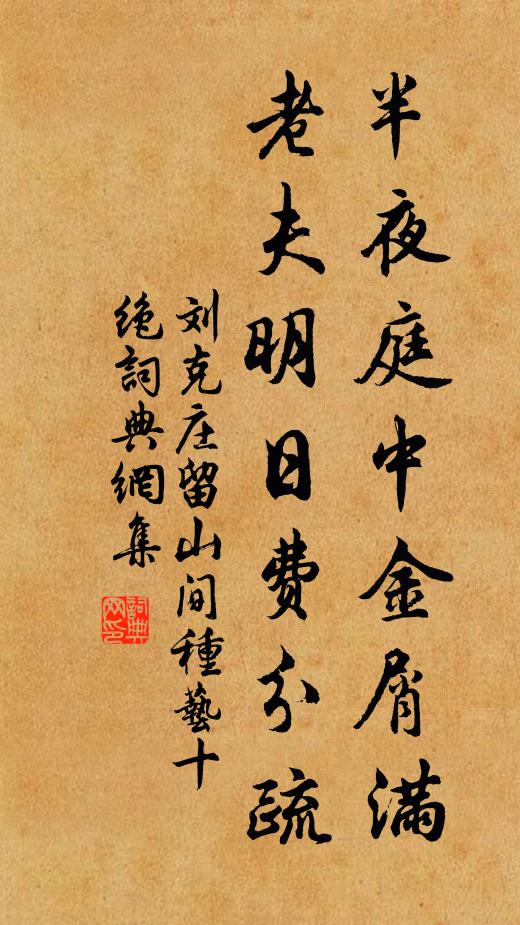 半夜庭中金屑满
老夫明日费分疏
刘克庄留山间種藝十
绝詞典網集
詞典
网印